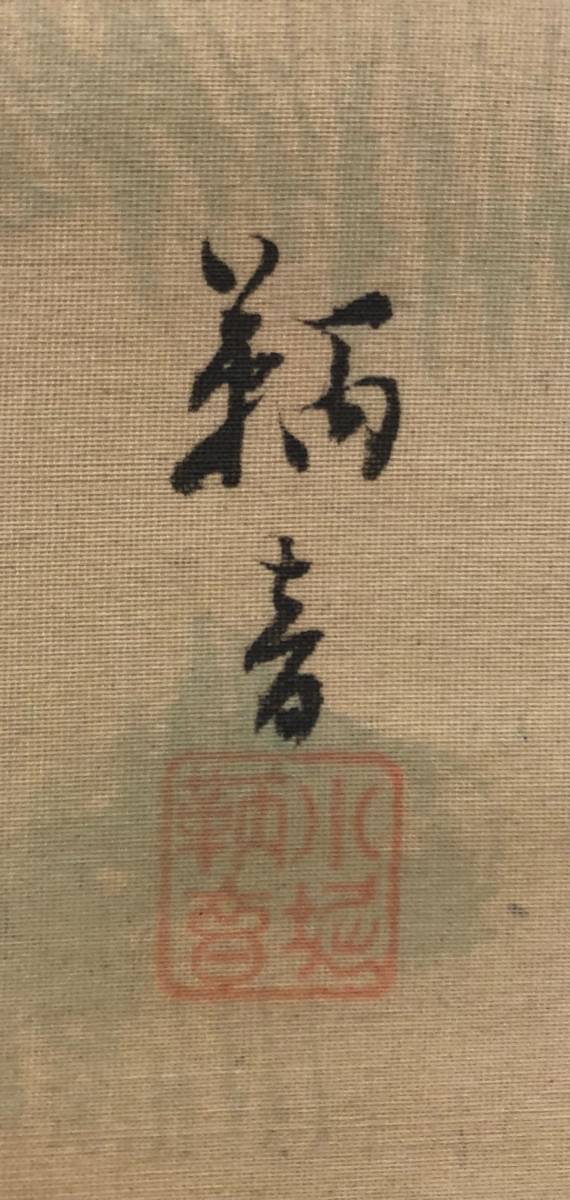 鞆音
小堀
鞆音